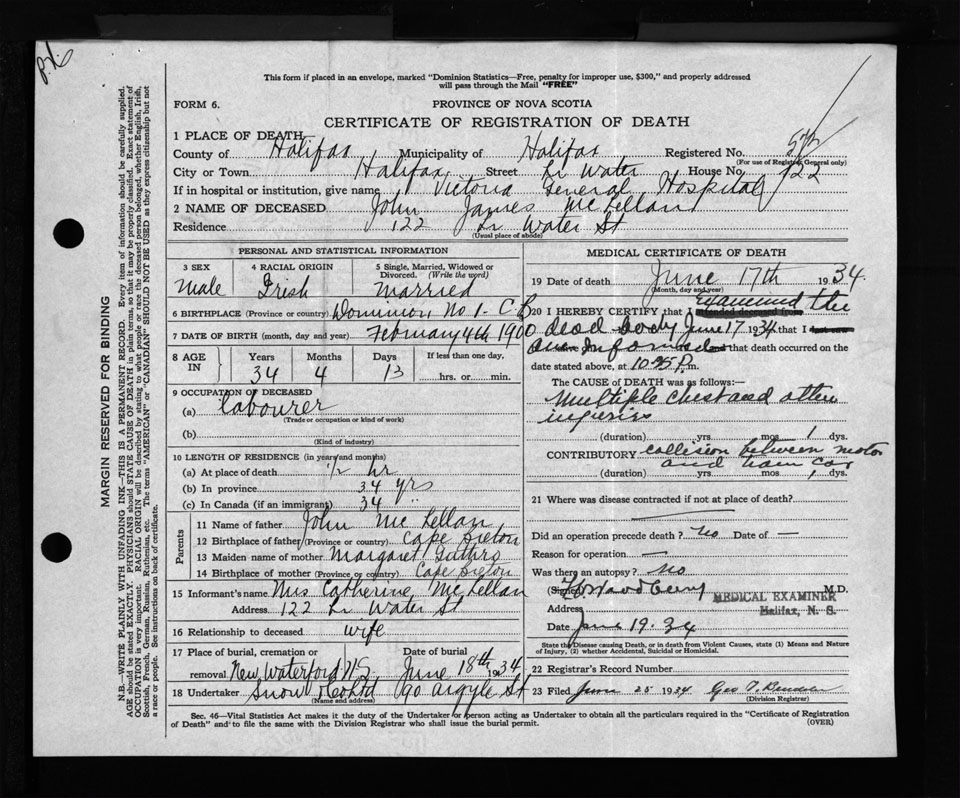 This form if placed in an envelope, marked "Dominion Statistics—Free, penalty for improper use, $300," and properly addressed
will pass through the Mail "FREE"
FORM 6. PROVINCE OF NOVA SCOTIA
CERTIFICATE OF REGISTRATION OF DEATH
1 PLACE OF DEATH
County of Halifax Municipality of Halifax Registered No.
(For use of Registrar General only)
City or Town Halifax Street Lr Water House No. 122
If in hospital or institution, give name Victoria General Hospital
2 NAME OF DECEASED John James McLellan
Residence 122 Lr Water St
(Usual place of abode)
PERSONAL AND STATISTICAL INFORMATION
3 SEX 4 RACIAL ORIGIN 5 Single, Married, Widowed or Divorced. (Write the word)
Male Irish Married
6 BIRTHPLACE (Province or country) Dominion, No 1. C.B
7 DATE OF BIRTH (month, day and year) February 4th 1900
8 AGE IN Years Months Days If less than one day,
34 4 13 hrs. or min.
9 OCCUPATION OF DECEASED
(a) labourer
(Trade or occupation or kind of work)
(b)
(Kind of industry)
10 LENGTH OF RESIDENCE (in years and months)
(a) At place of death 1/2 hr
(b) In province 34 yrs
(c) In Canada (if an immigrant) 34 "
Parents
11 Name of father John McLellan
12 Birthplace of father (Province or country) Cape Breton
13 Maiden name of mother Margaret Guthro
14 Birthplace of mother (Province or country) Cape Breton
15 Informant's name Mrs Catherine McLellan
Address 122 Lr Water St
16 Relationship to deceased wife
17 Place of burial, cremation or removal New Waterford N.S. Date of burial June 18th 1934
18 Undertaker Snow & Co Ltd 90 Argyle St
(Name and address)
MEDICAL CERTIFICATE OF DEATH
19 Date of death June 17th 1934.
(Month, day and year)
20 I HEREBY CERTIFY that I attended deceased from Examined the
dead body June 17 1934 that I
am Informed that death occurred on the
date stated above, at 10.25 P.m.
The CAUSE of DEATH was as follows:—
Multiple chest and other
injuries
(duration) yrs. mos. 1 dys.
CONTRIBUTORY collision between motor
and tram car
(duration) yrs. mos. 1 dys.
21 Where was disease contracted if not at place of death?
Did an operation precede death? no Date of —
Reason for operation —
Was there an autopsy? no
(Signed) M.D.
MEDICAL EXAMINER
Address Halifax, N. S.
Date June 19. 34
State the Disease causing Death, or in death from Violent causes, state (1) Means and Nature
of Injury, (2) whether Accidental, Suicidal or Homicidal.
22 Registrar's Record Number
23 Filed June 25 1934
(Division Registrar)
Sec. 46—Vital Statistics Act makes it the duty of the Undertaker or person acting as Undertaker to obtain all the particulars required in the "Certificate of Registration
of Death" and to file the same with the Division Registrar who shall issue the burial permit. (OVER)
MARGIN RESERVED FOR BINDING
N.B.—WRITE PLAINLY WITH UNFADING INK—THIS IS A PERMANENT RECORD. Every item of information should be carefully supplied.
AGE should be stated EXACTLY. PHYSICIANS should STATE CAUSE OF DEATH in plain terms, so that it may be properly classified. Exact statement of
OCCUPATION is very important. RACIAL ORIGIN will be described by stating to what people or race the deceased person belonged, whether English, Irish,
Scottish, French, German, Russian, Ruthenian, etc. The terms "AMERICAN" or "CANADIAN" SHOULD NOT BE USED as they express citizenship but not
a race or people. See instructions on back of certificate.